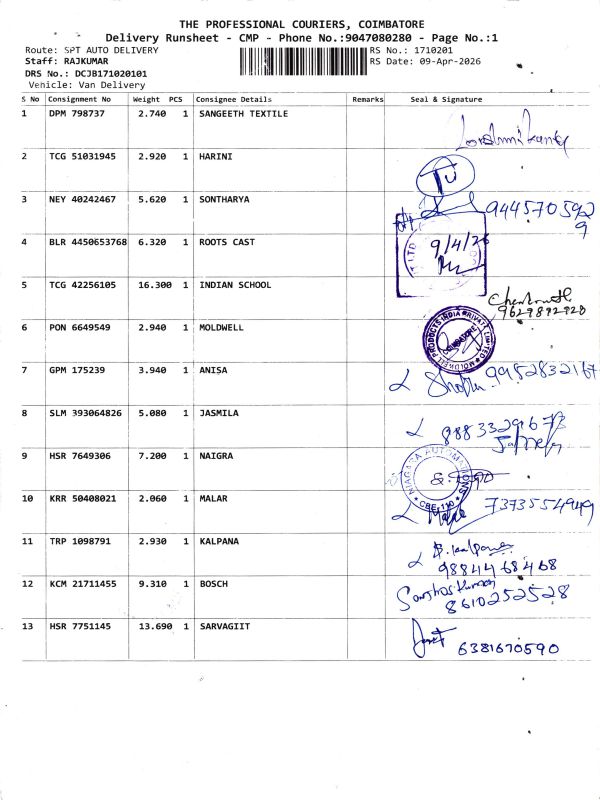 THE PROFESSIONAL COURIERS, COIMBATORE
Delivery Runsheet - CMP - Phone No.:9047080280 - Page No.:1
Route: SPT AUTO DELIVERY
RS No.: 1710201
Staff: RAJKUMAR
RS Date: 09-Apr-2026
DRS No.: DCJB171020101
Vehicle: Van Delivery
S No Consignment No Weight PCS Consignee Details Remarks Seal & Signature
1 DPM 798737 2.740 1 SANGEETH TEXTILE
2 TCG 51031945 2.920 1 HARINI
3 NEY 40242467 5.620 1 SONTHARYA 944570592
9
4 BLR 4450653768 6.320 1 ROOTS CAST 9/4/26
5 TCG 42256105 16.300 1 INDIAN SCHOOL
9629892920
6 PON 6649549 2.940 1 MOLDWELL MOLDWELL PRODUCTS INDIA PRIVATE LIMITED COIMBATORE
7 GPM 175239 3.940 1 ANISA 9952832167
8 SLM 393064826 5.080 1 JASMILA
9 HSR 7649306 7.200 1 NAIGRA NIAGARA AUTOMATIONS CBE-110
10 KRR 50408021 2.060 1 MALAR 7373554949
11 TRP 1098791 2.930 1 KALPANA B. kalpana
9884468468
12 KCM 21711455 9.310 1 BOSCH
8610252528
13 HSR 7751145 13.690 1 SARVAGIIT
6381670590